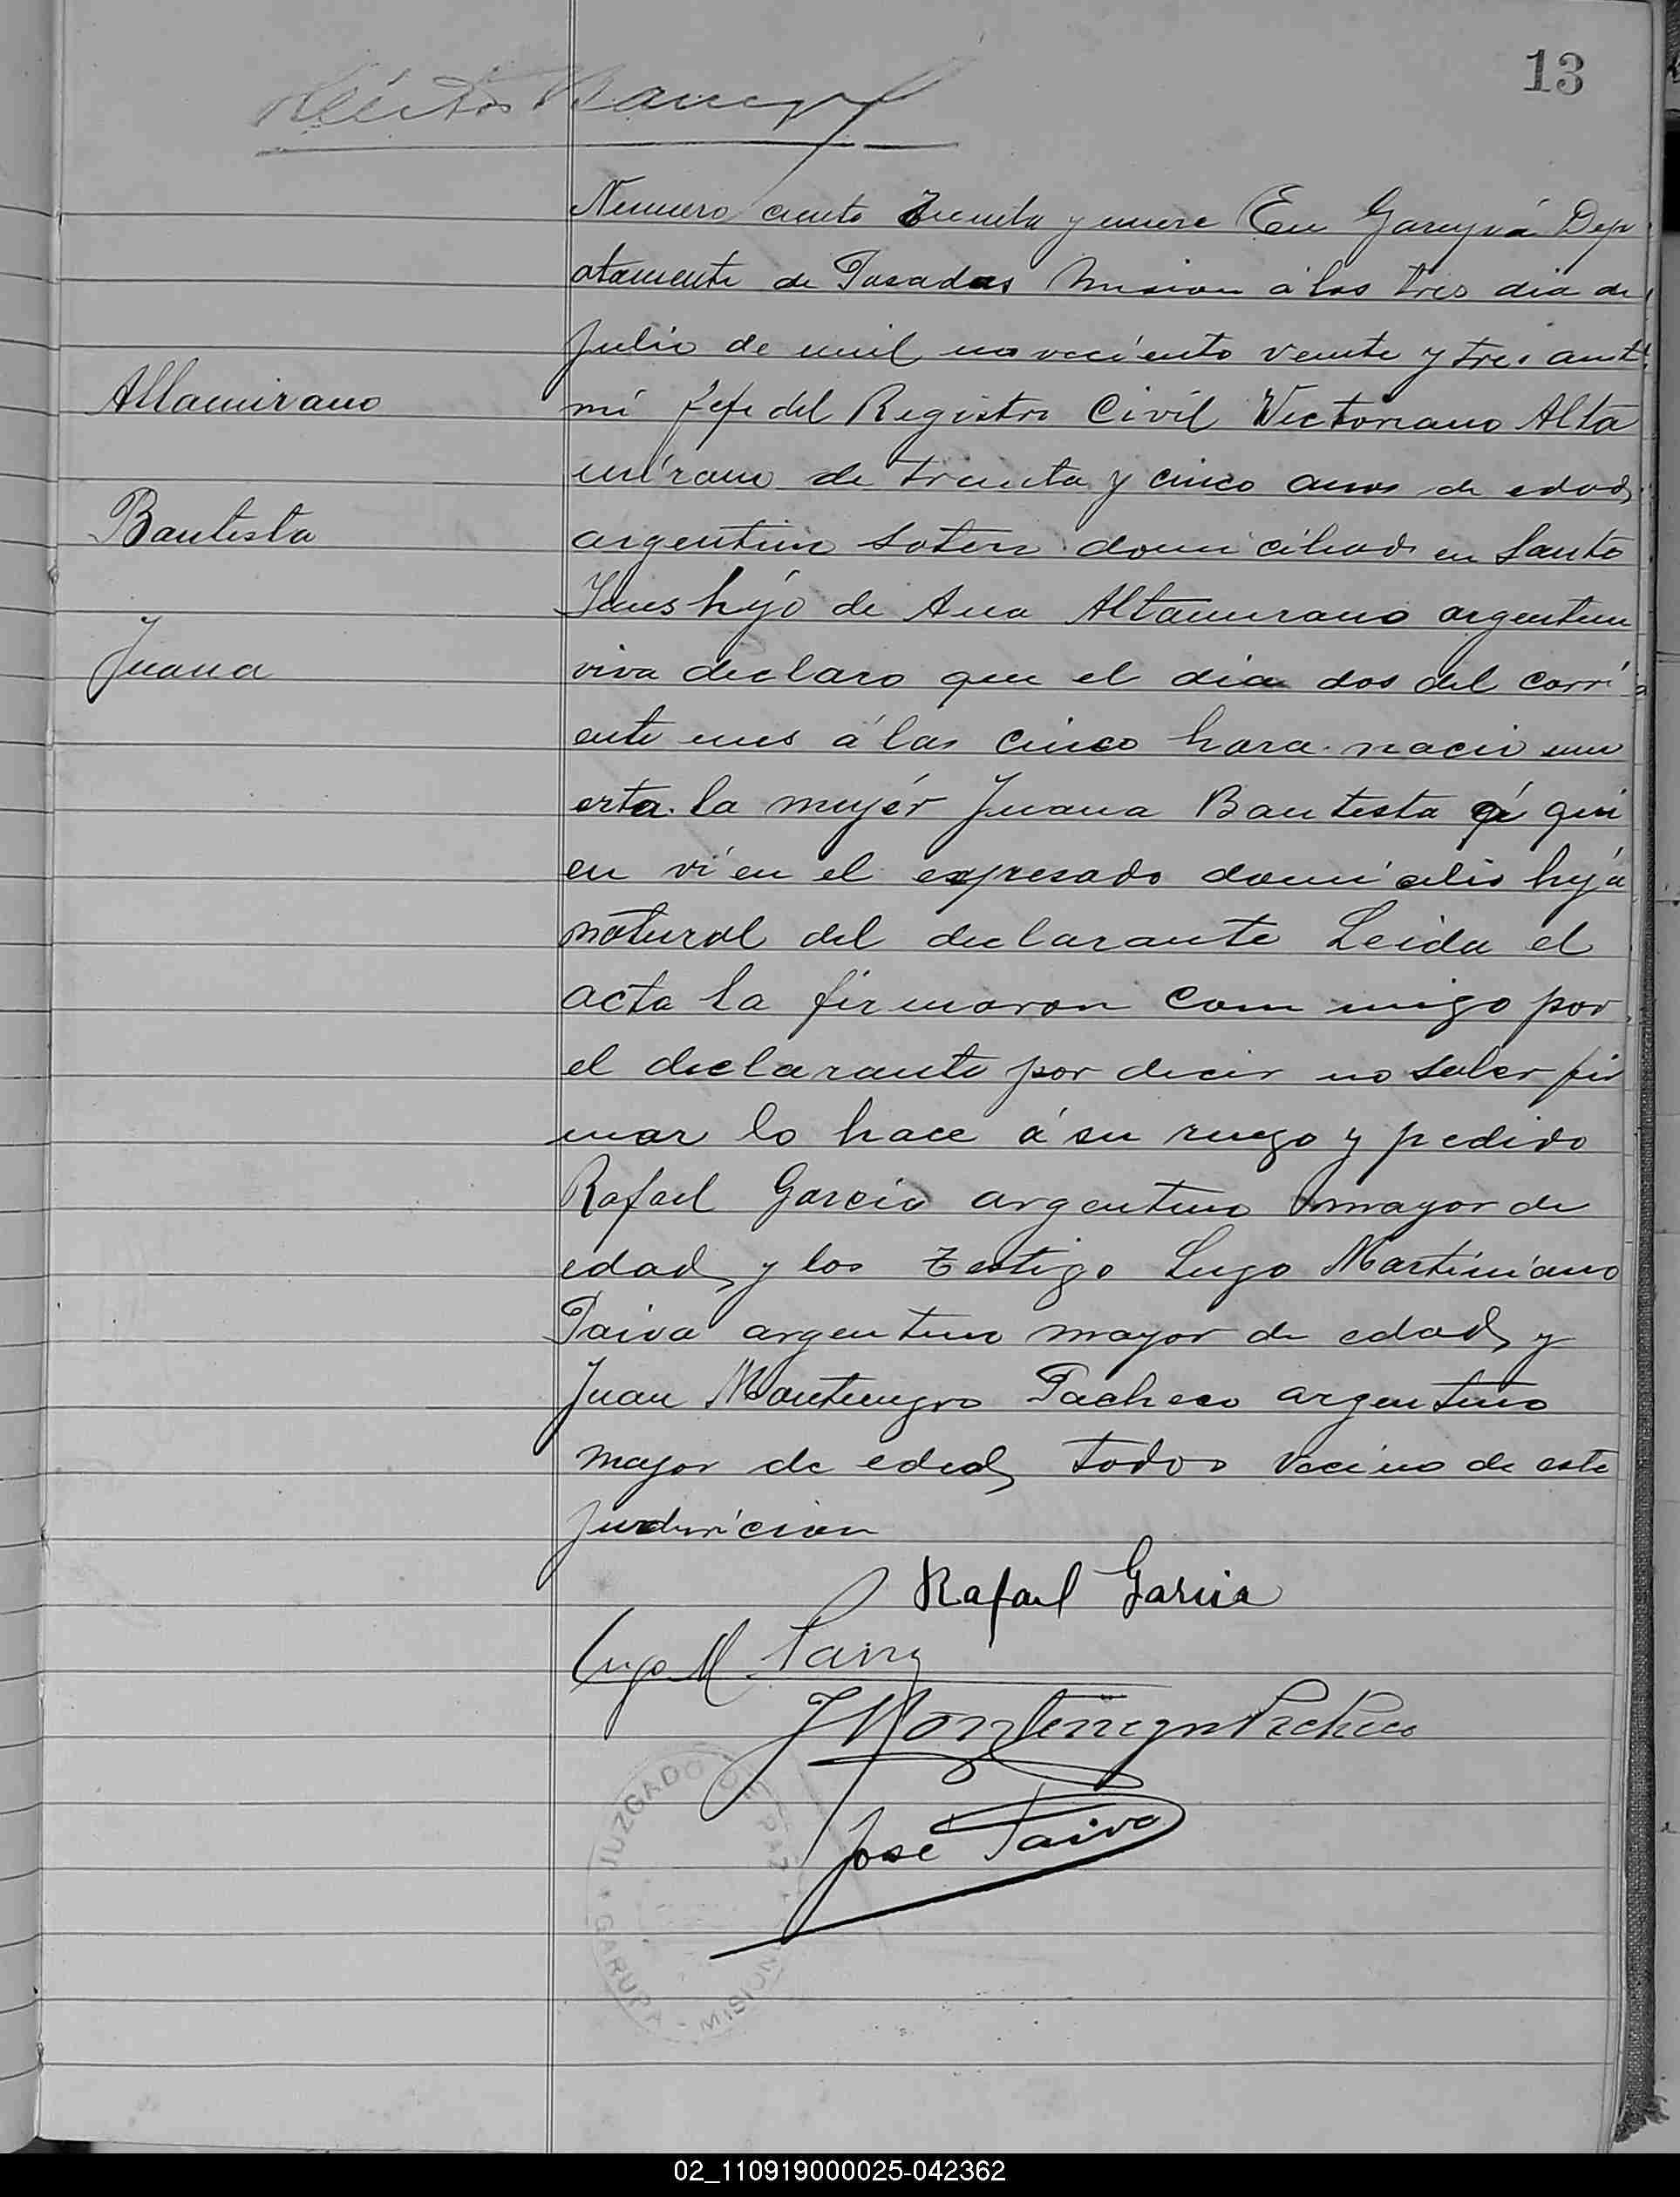 13
Numero ciento Treinta y nueve En Garupá Dep
atamente de Posadas Mision á los tres dia de
Julio de mil noveciento veinte y tres ante
mi Jefe del Registro Civil Victoriano Alta
Altamirano
mirano de treinta y cinco anos de edad
Bautista
argentino soltero domiciliado en Santo
Juana
Ines hijo de Ana Altamirano argentina
viva declaro que el dia dos del corri
ente mes á las cinco hora nacio mu
erta la mujér Juana Bautista á qui
en ví en el expresado domicilio hija
natural del declarante Leida el
acta la firmaron com migo por
el declarante por decir no saber fir
mar lo hace á su ruego y pedido
Rafael Garcia argentino mayor de
edad y los testigo Lugo Martiniano
Paiva argentino mayor de edad y
Juan Montenegro Pacheco argentino
mayor de edad todos vecino de este
jurdiricion
Rafael Garcia
Lugo M Paiva
J Montenegro Pacheco
José Paiva
JUZGADO DE PAZ
GARUPA - MISIONES
02_110919000025-042362